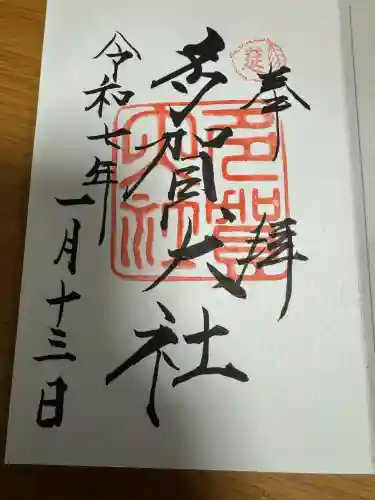 奉拝
多賀大社
令和七年一月十三日
多賀大社